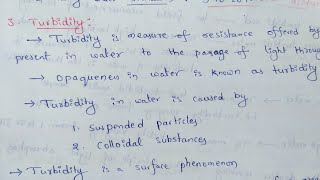 3. Turbidity :
→ Turbidity is measure of resistance offered by
present in water to the passage of light through
→ Opaqueness in water is known as turbidity
→ Turbidity in water is caused by
1. Suspended particles
2. Colloidal substances
→ Turbidity is a surface phenomenon